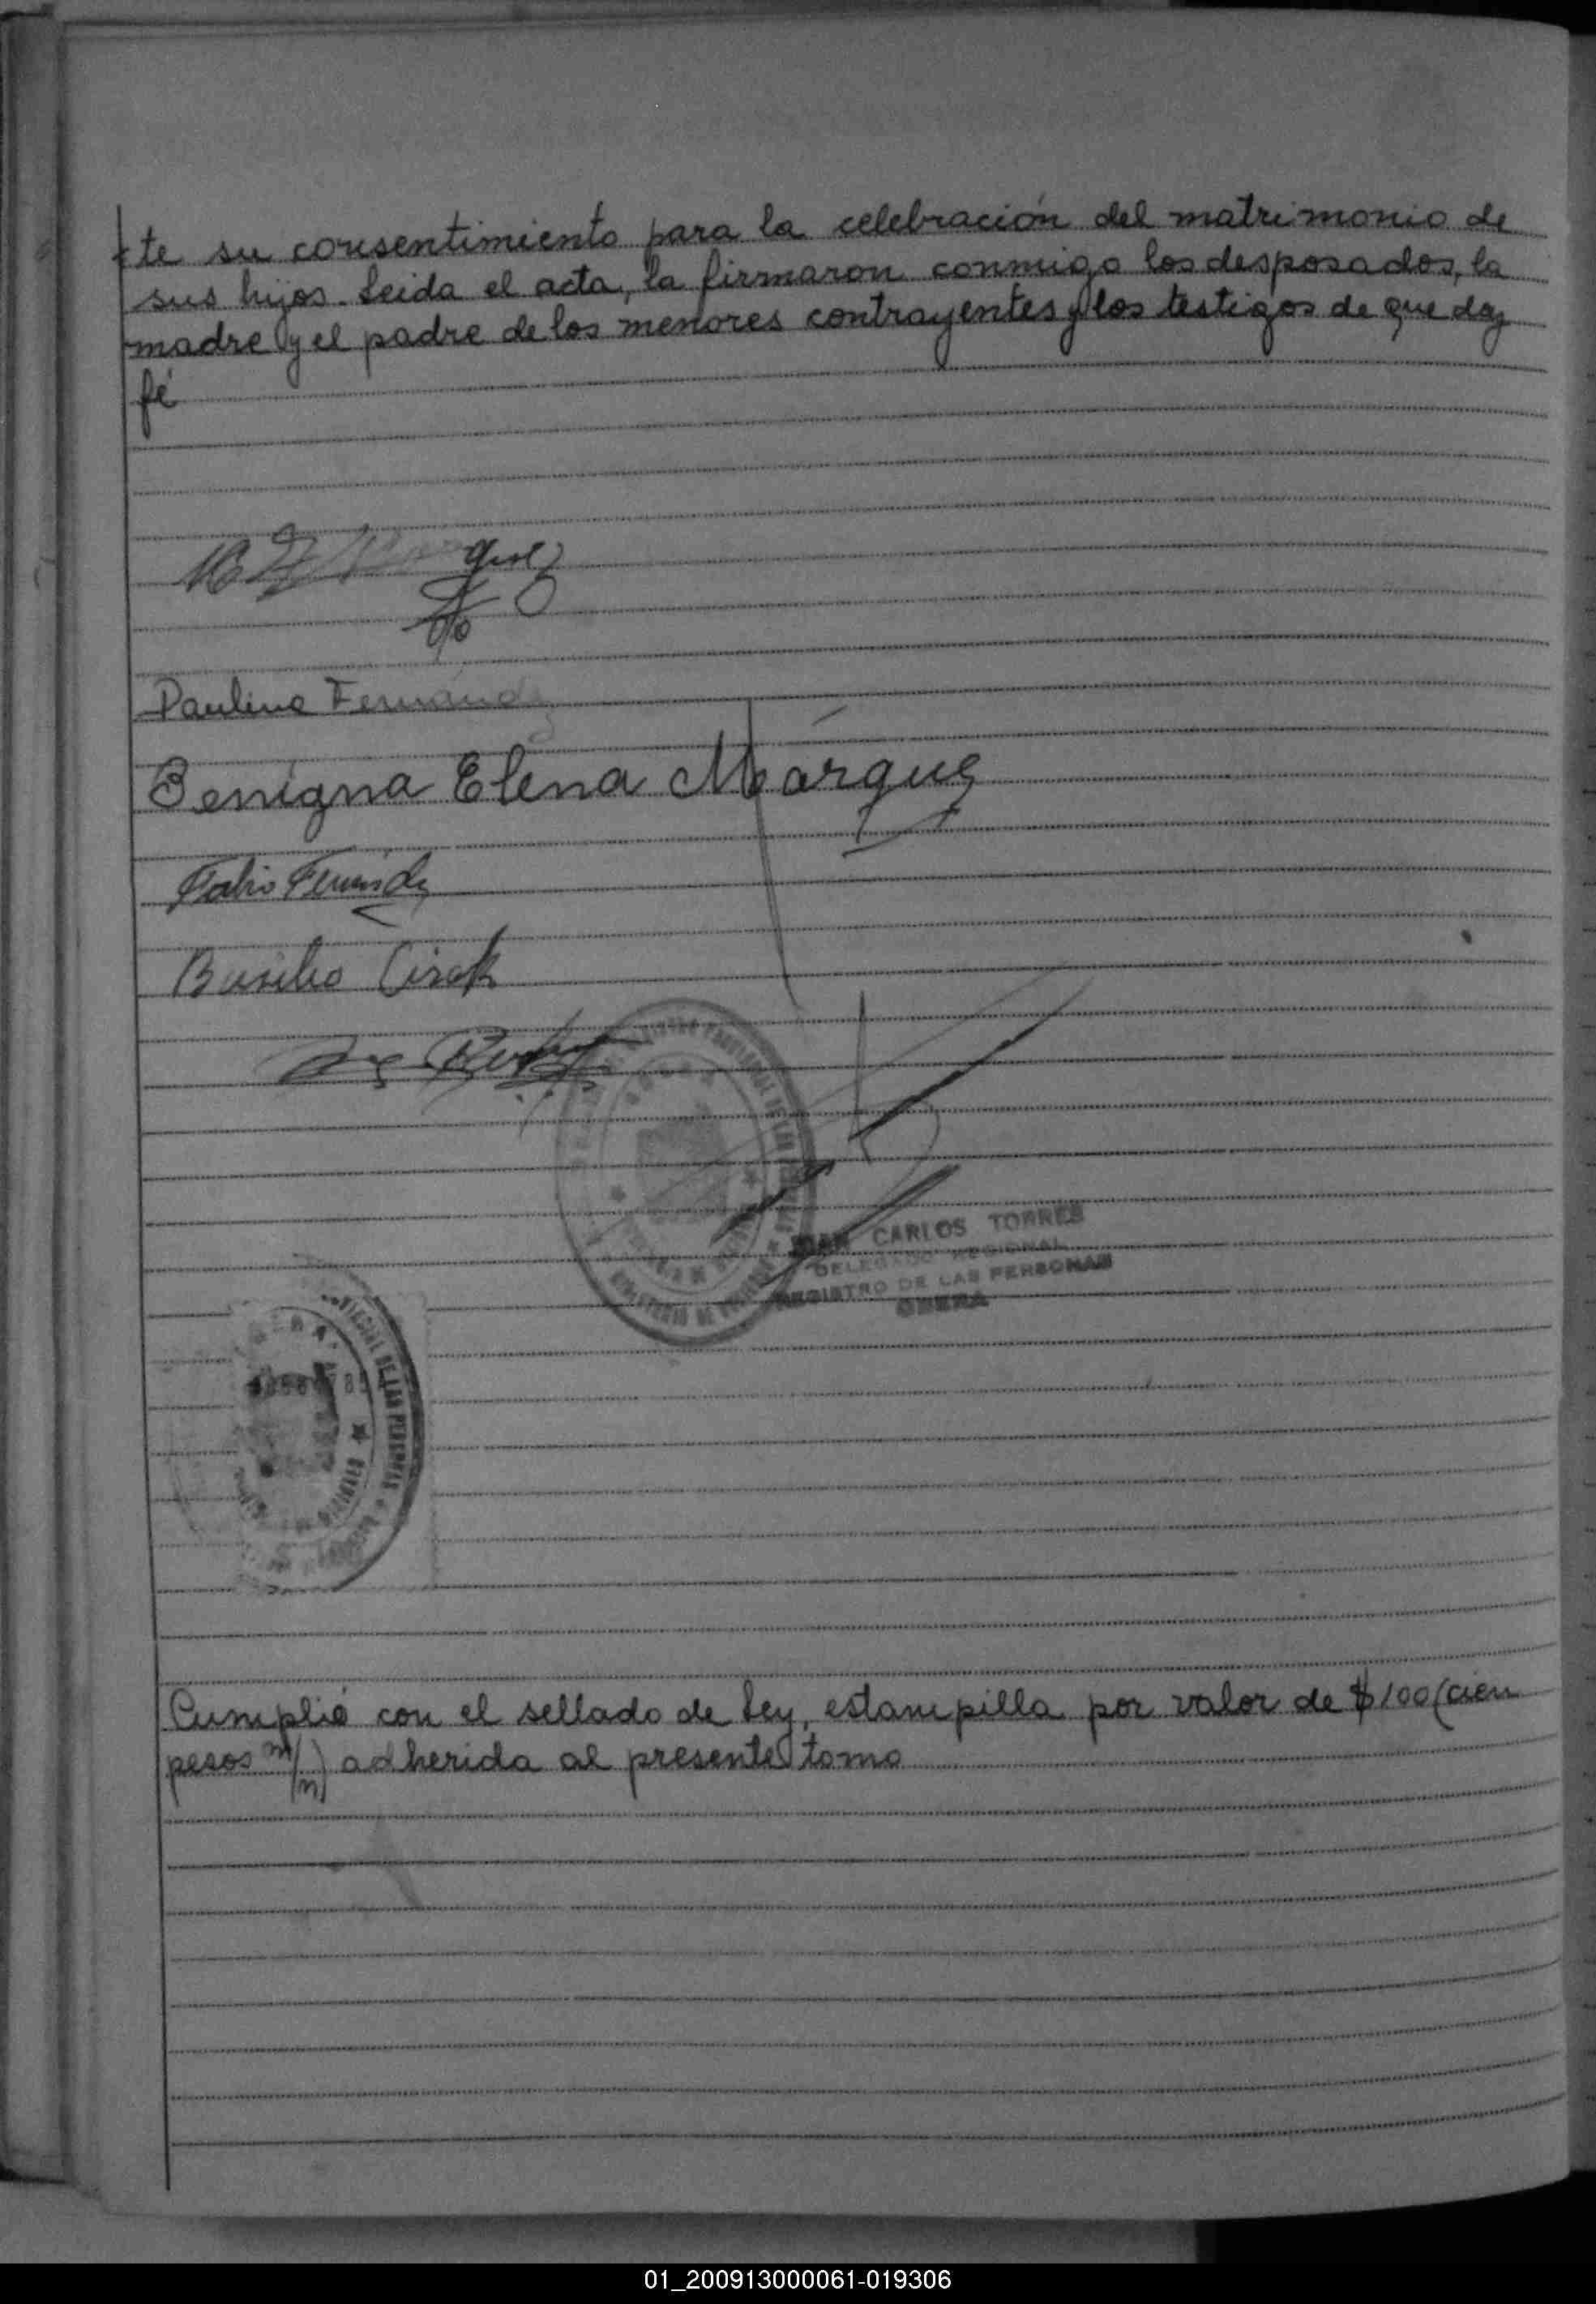 te su consentimiento para la celebración del matrimonio de
sus hijos. Leida el acta, la firmaron conmigo los desposados, la
madre y el padre de los menores contrayentes y los testigos de que doy
fé
Fernández
Benigna Elena Márquez
Basilio
JUAN CARLOS TORRES
DELEGADO REGIONAL
REGISTRO DE LAS PERSONAS
OBERA
Cumplió con el sellado de Ley, estampilla por valor de $ 100 (cien
pesos m/n) adherida al presente tomo
01_200913000061-019306